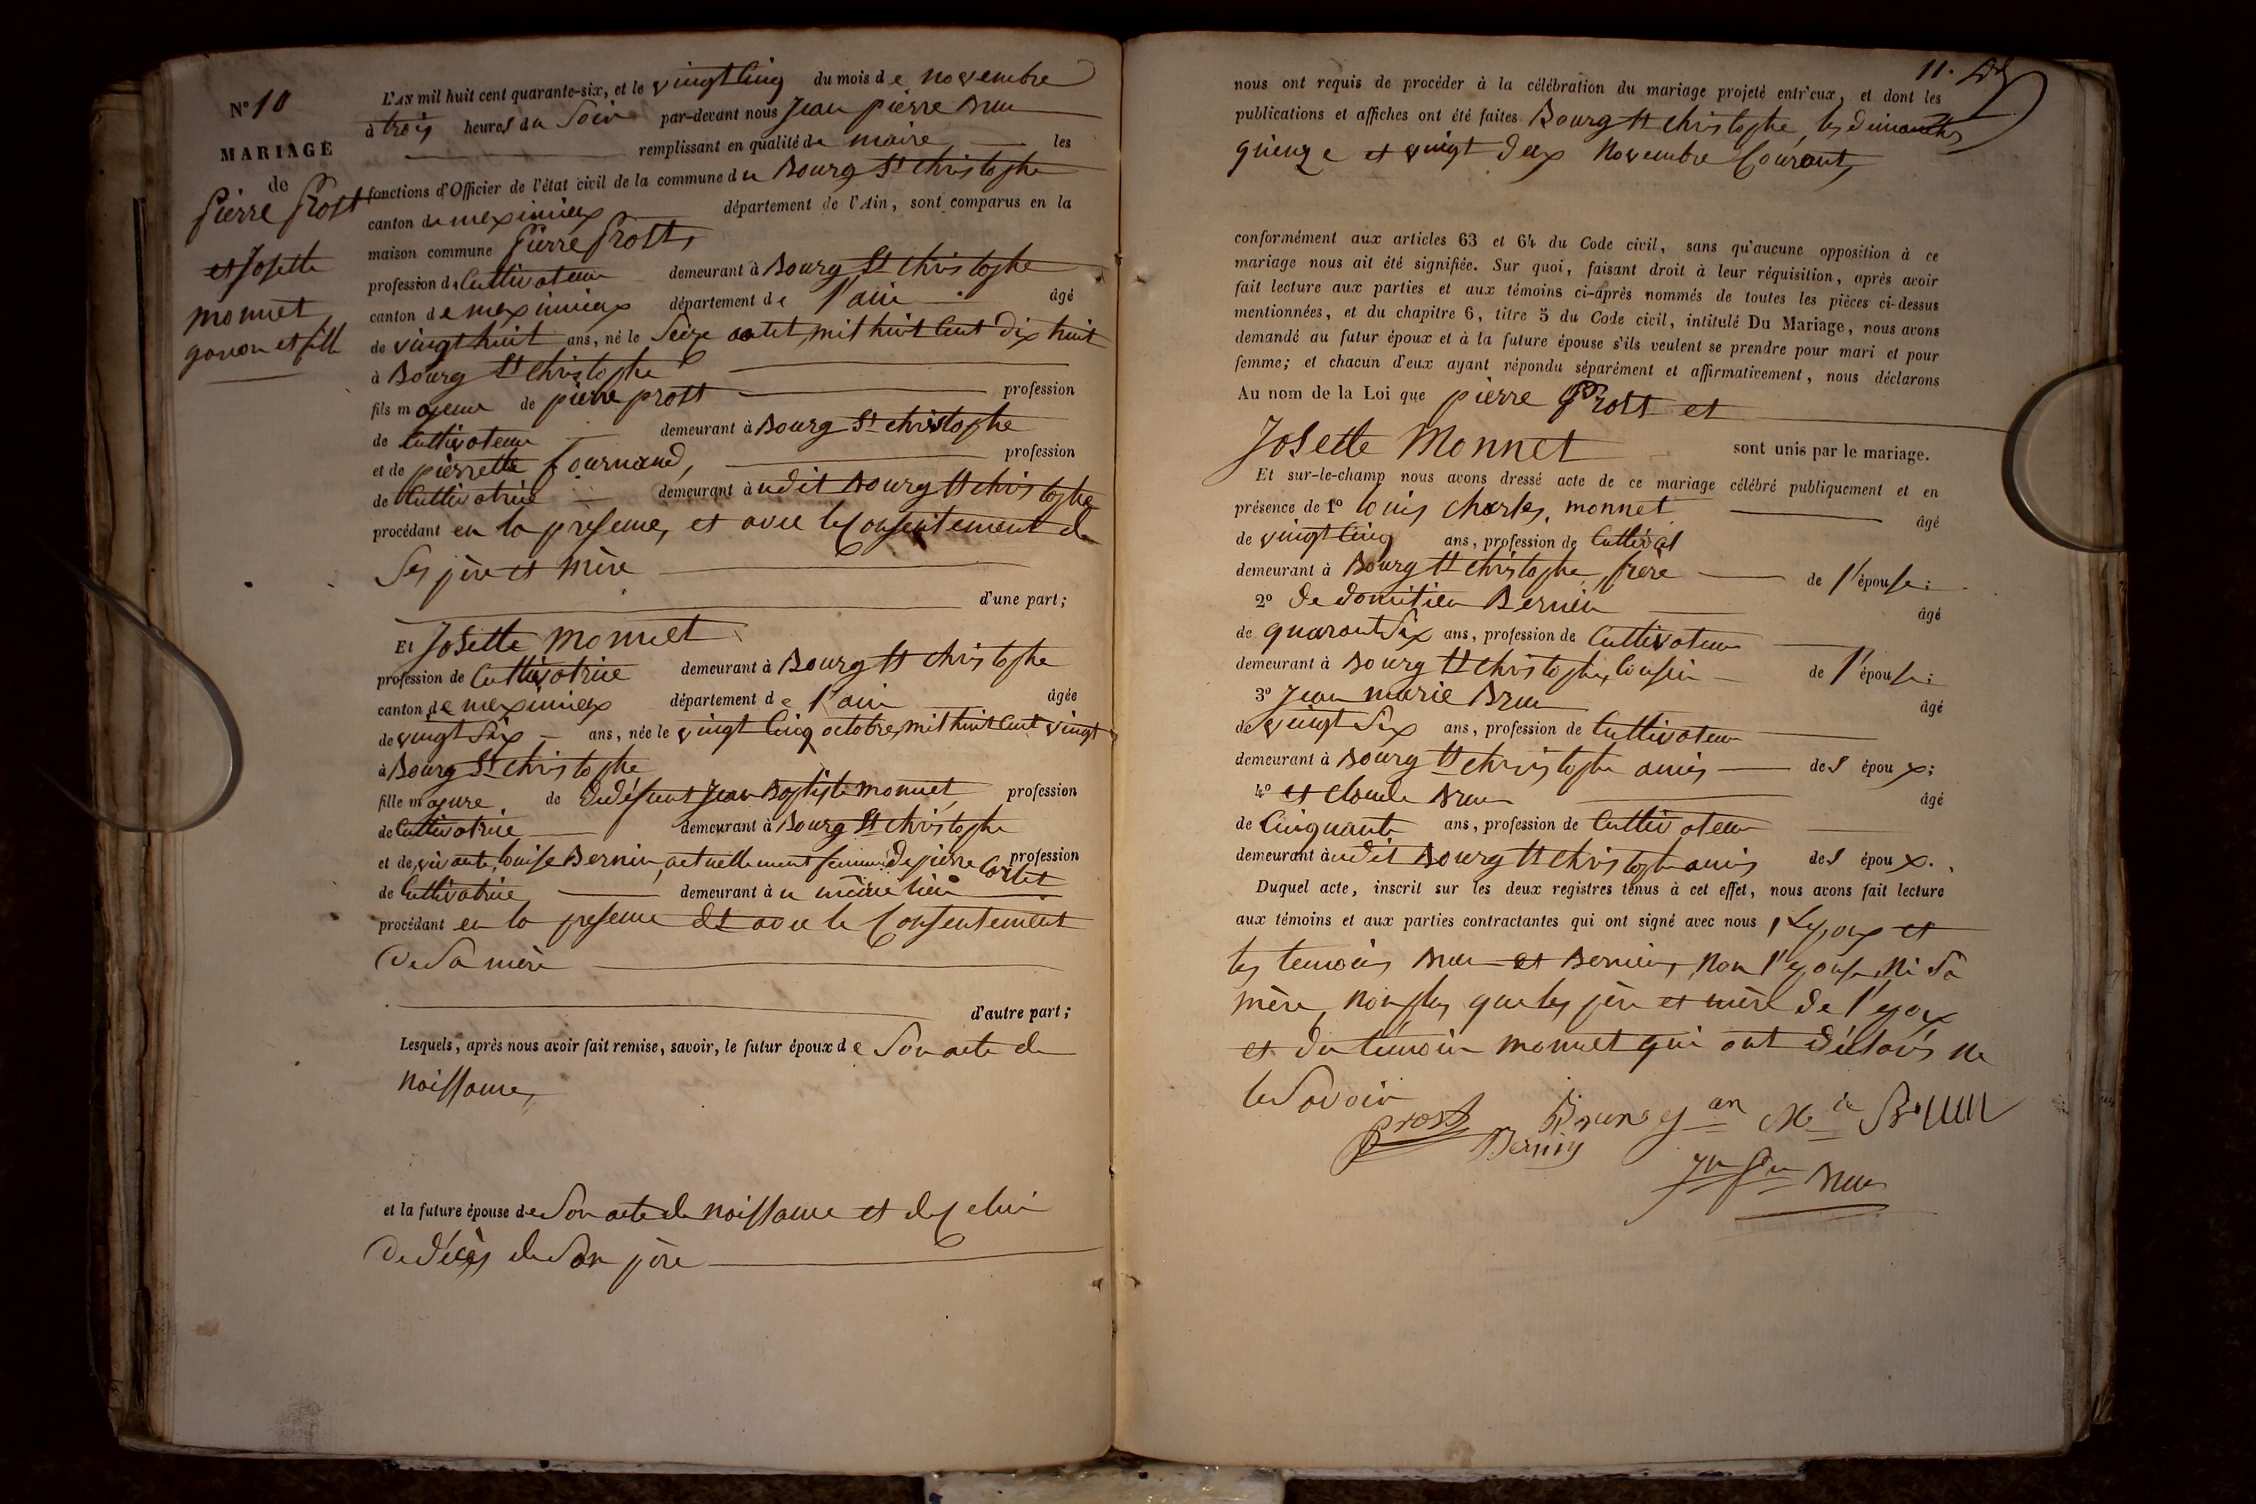 N° 10
MARIAGE
de
Pierre Prost
et Josette
monnet
garcon et fille
L'AN mil huit cent quarante-six, et le vingt cinq du mois de novembre
à trois heures du Soir par-devant nous Jean pierre Brun
remplissant en qualité de maire les
fonctions d'Officier de l'état civil de la commune du Bourg St christophe
canton de meximieux département de l'Ain, sont comparus en la
maison commune Pierre Prost,
profession de Cultivateur demeurant à Bourg St christophe
canton de meximieux département de l'ain âgé
de vingt huit ans, né le Seize aout, mil huit Cent dix huit
à Bourg St christophe
fils majeur de pierre prost profession
de Cultivateur demeurant à Bourg St christophe
et de pierrette fournand, profession
de Cultivatrice demeurant à udit Bourg St christophe
procédant en la presence, et avec le Consentement de
Ses père et mère
d'une part;
Et Josette monnet
profession de Cultivatrice demeurant à Bourg St christophe
canton de meximieux département de l'ain âgée
de vingt Six ans, née le vingt Cinq octobre, mil huit Cent vingt
à Bourg St christophe
fille majure de de défunt Jean Baptiste monnet profession
de Cultivatrice demeurant à Bourg St christophe
et de vivante, louise Bernin, actuellement femme de pierre profession
de Cultivatrice demeurant à u même lieu
procédant en la presence et avec le Consentement
de Sa mère
d'autre part;
Lesquels, après nous avoir fait remise, savoir, le futur époux de Son acte de
naissance,
et la future épouse de Son acte de naissance et de Celui
de décès de Son père
11.
nous ont requis de procéder à la célébration du mariage projeté entr'eux, et dont les
publications et affiches ont été faites Bourg St christophe, les dimanches
quinze et vingt deux Novembre Courant,
conformément aux articles 63 et 64 du Code civil, sans qu'aucune opposition à ce
mariage nous ait été signifiée. Sur quoi, faisant droit à leur réquisition, après avoir
fait lecture aux parties et aux témoins ci-après nommés de toutes les pièces ci-dessus
mentionnées, et du chapitre 6, titre 5 du Code civil, intitulé Du Mariage, nous avons
demandé au futur époux et à la future épouse s'ils veulent se prendre pour mari et pour
femme; et chacun d'eux ayant répondu séparément et affirmativement, nous déclarons
Au nom de la Loi que pierre Prost et
Josette Monnet sont unis par le mariage.
Et sur-le-champ nous avons dressé acte de ce mariage célébré publiquement et en
présence de 1° louis charles, monnet âgé
de vingt Cinq ans, profession de
demeurant à Bourg St christophe, frere de l'épouse;
2° de domitien Bernin âgé
de quarant Six ans, profession de Cultivateur
demeurant à Bourg St christophe, Cousin de l'épouse;
3° Jean marie Brun âgé
de vingt Six ans, profession de Cultivateur
demeurant à Bourg St christophe amis des époux;
4° et claude Brun âgé
de Cinquante ans, profession de Cultivateur
demeurant à udit Bourg St christophe amis des époux.
Duquel acte, inscrit sur les deux registres tenus à cet effet, nous avons fait lecture
aux témoins et aux parties contractantes qui ont signé avec nous, L'epoux et
les temoins Brun et Bernin, Non l'epouse, Ni Sa
mère, Non plus que les père et mère de l'epoux
et du témoin monnet qui ont déclarés ne
le Savoir
prost Brun Jan Mie Brun
Bernin
Jn Pre Brun